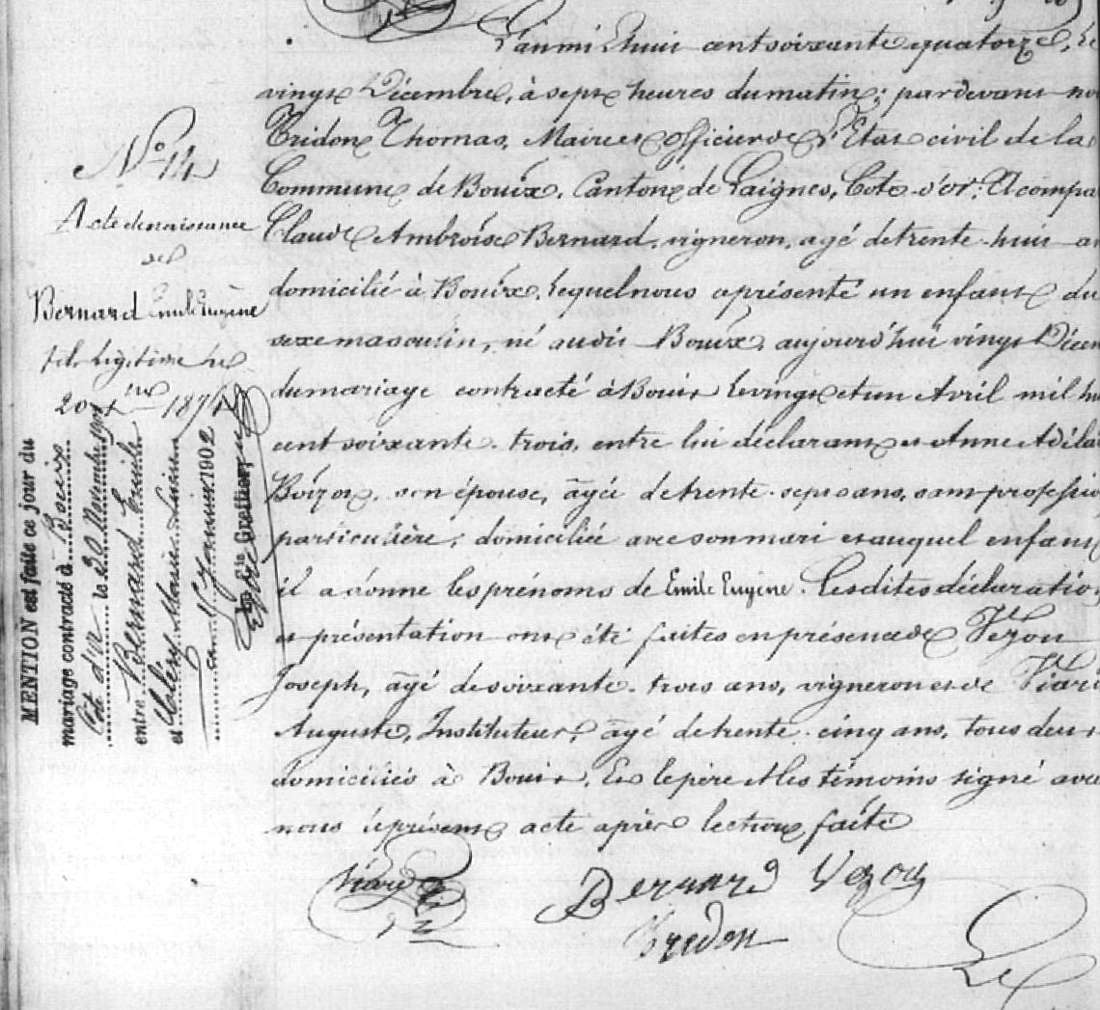 L'an mil huit cent soixante quatorze, le
vingt Décembre, à sept heures du matin; pardevant no
Tridon Thomas, Maire et officier de l'Etat civil de la
Commune de Bouix, Canton de Laignes, Côte-d'or, A compa
Claude Ambroise Bernard, vigneron, agé de trente-huit a
domicilié à Bouix, lequel nous a présenté un enfant du
sexe masculin, né audit Bouix, aujourd'hui vingt Décem
du mariage contracté à Bouix le vingt et un Avril mil hu
cent soixante-trois, entre lui déclarant et Anne Adéla
son épouse, âgée de trente-sept ans, sans professio
particulière, domiciliée avec son mari et auquel enfant
il a donné les prénoms de Emile Eugène. Lesdites déclaratio
et présentation ont été faites en présence de Vezon
Joseph, âgé de soixante-trois ans, vigneron et de Viard
Auguste, Instituteur, âgé de trente-cinq ans, tous deux
domiciliés à Bouix. Et le père et les témoins signé avec
nous le présent acte après lecture faite
Viard Bernard Vezon
Tridon
Le
N° 14
Acte de naissance
de
Bernard Emile Eugène
fils légitime de
20 Xbre 1874
MENTION est faite ce jour du
mariage contracté à Bouix
Côte d'or le 20 Novembre 1901
entre Bernard Emile
et Marie
ce Janvier 1902
Le Greffier,